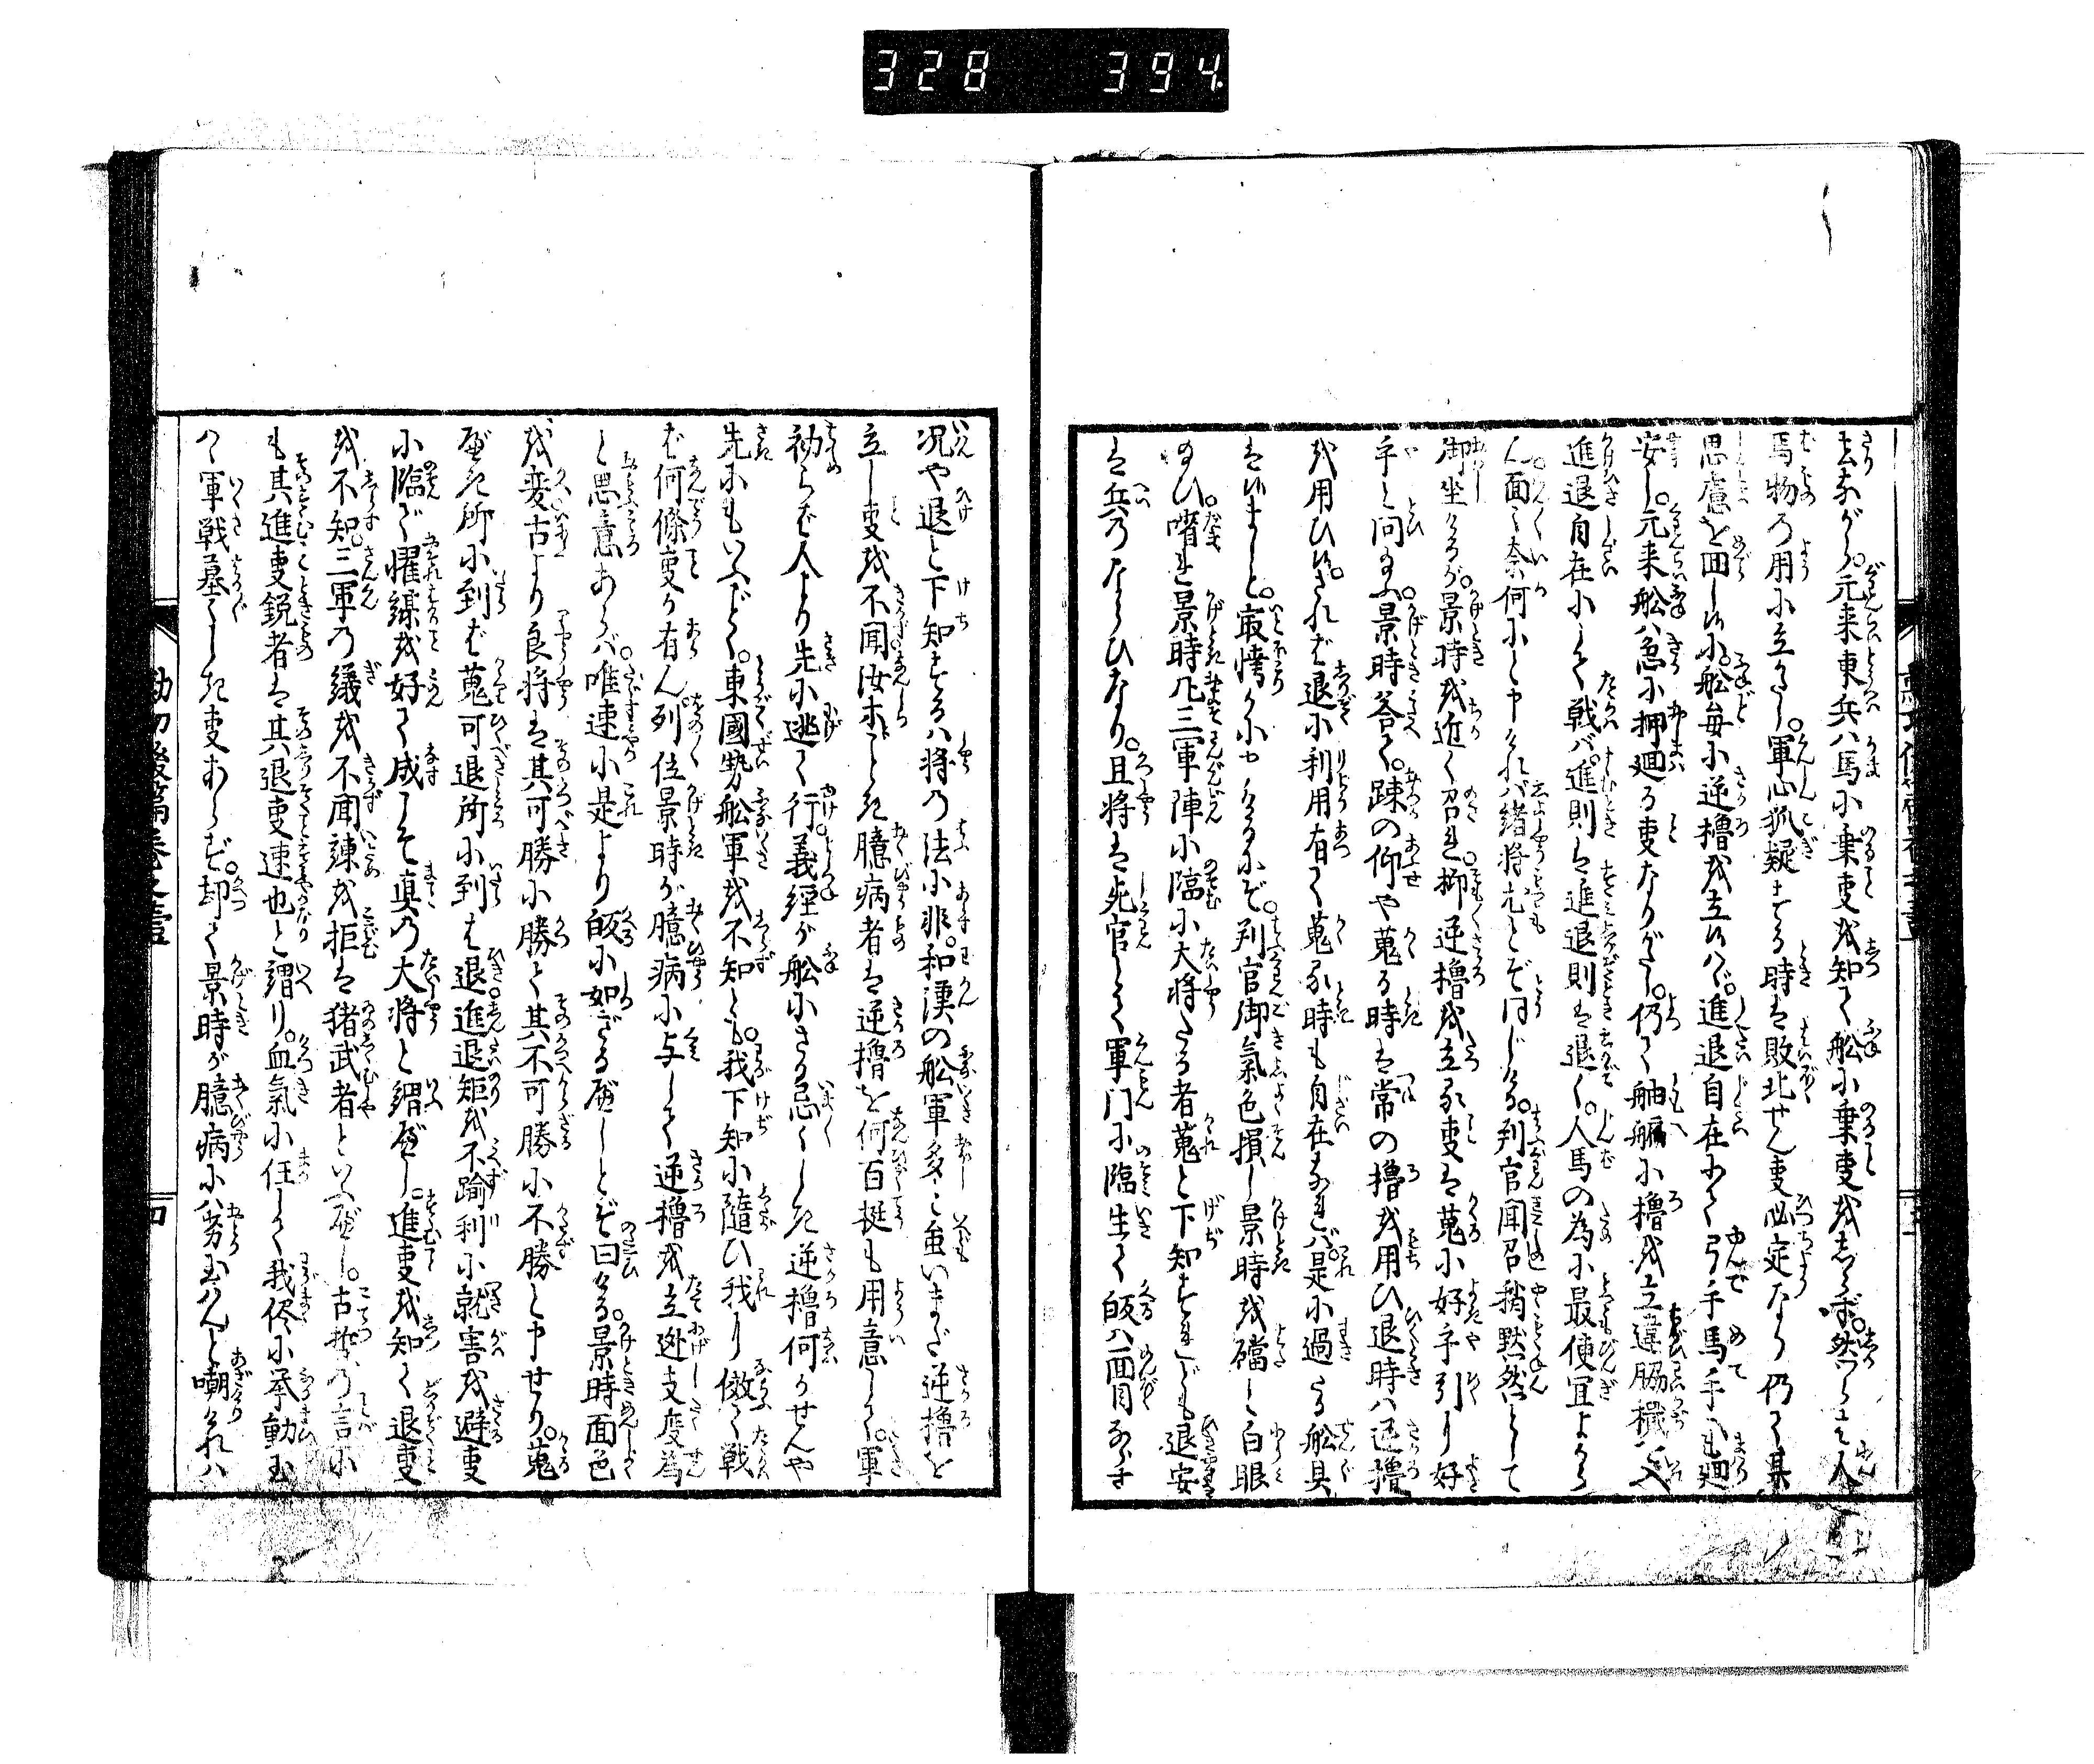 328 394
去ながら。元来東兵ハ馬に乗事を知て舩に乗事をしらず。然つらく人
馬物の用に立がたし。軍心狐疑する時は敗北せん事必定なり仍て某
思慮を回し候に。舩毎に逆櫓を立候ハヾ。進退自在にて弓手馬手へも廻
安し。元来舩ハ急に押廻る事なりがたし。仍て舳艫に櫓を立違脇檝を入
進退自在にして戦バ。進則は進退則は退く。人馬の為に最便宜よから
ん面々奈何にと申けれバ緒将尤とぞ同じける。判官聞召稍黙然として
御坐けるが。景時を近く召れ。抑逆櫓を立る事は蒐に好や引に好
手と問ふ。景時答て。踈の仰や蒐る時は常の櫓を用ひ退時ハ逆櫓
を用ひ候。されば退に利用有て蒐る時も自在なれバ。是に過たる舩具
は候まじと。最憚りに申けるにぞ。判官御氣色損し景時を礑と白眼
給ひ。嗜れ景時凡三軍陣に臨に大将たる者蒐と下知すれども退安
は兵のならひなり。且将は死官とて軍门に臨生て皈ハ面目なす
况や退と下知するハ将の法に非。和漢の舩軍多しと虽いまだ逆櫓を
立し事を不聞汝ホごとき臆病者は逆櫓を何百挺も用意して。軍
初らば人より先に逃て行。義經が舩にさる忌々しき逆櫓何かせんや
先にもいふごとく。東國勢舩軍を不知とも。我下知に隨ひ我に傚て戦
ば何條事か有ん。列位景時が臆病に与して逆櫓を立逊支度為
と思意あらバ。唯速に是より皈に如ざるべしとぞ曰ける。景時面色
を変古より良将は其可勝に勝て其不可勝に不勝と申せり。蒐
べき所に到ば蒐可退所に到ば退。進退矩を不踰利に就害を避事
に臨で懼謀を好て成こそ真の大将と謂べし。進事を知て退事
を不知。三軍の議を不聞諫を拒は猪武者といふべし。古哲の言に
も其進事鋭者は其退事速也と謂り。血氣に任して我侭に挙動玉
て軍戦墓々しき事あらず。却て景時が臆病にハ劣玉はんと嘲けれハ